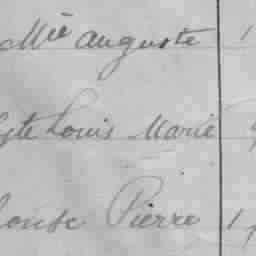 Mie auguste 1
yte Louis Marie
onse Pierre 1